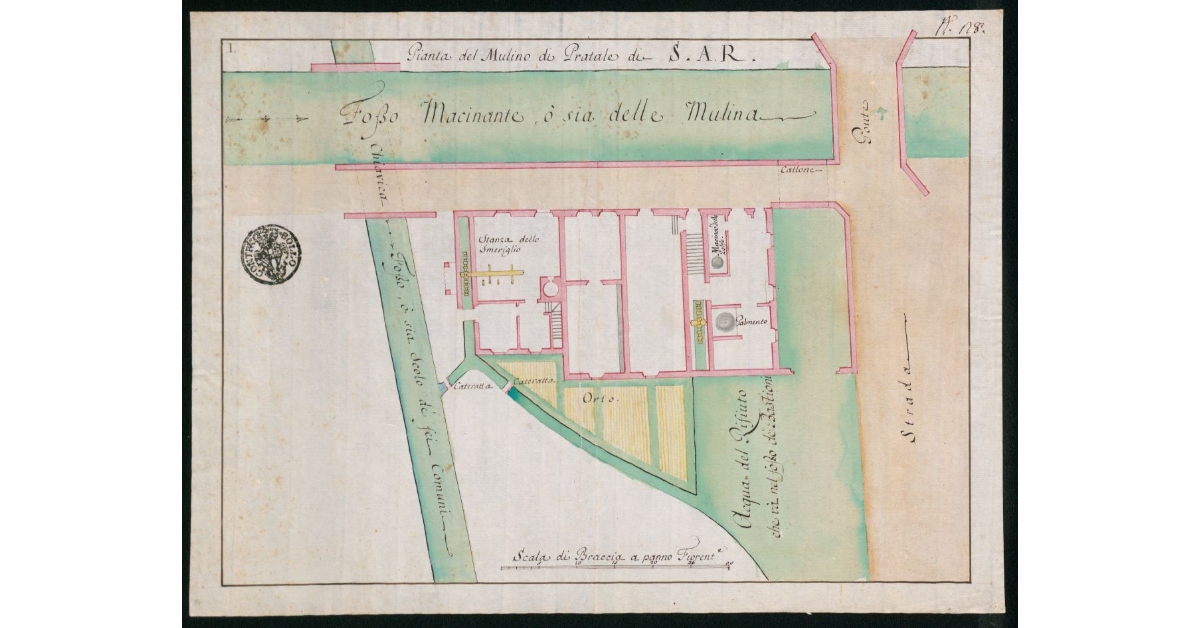 N.° 128.
1.
Pianta del Mulino di Pratale di S. A. R.
Foßo Macinante, ò sia delle Mulina
Ponte
Chiavica
Callone
Stanza dello
Smeriglio
Macine
Palmento
Foßo, ò sia Scolo de sei Comuni
Cateratta
Cateratta
Orto.
Acqua del Rifiuto
che và nel foßo de Bastioni
Strada
Scala di Braccia a panno Fiorent.e
10